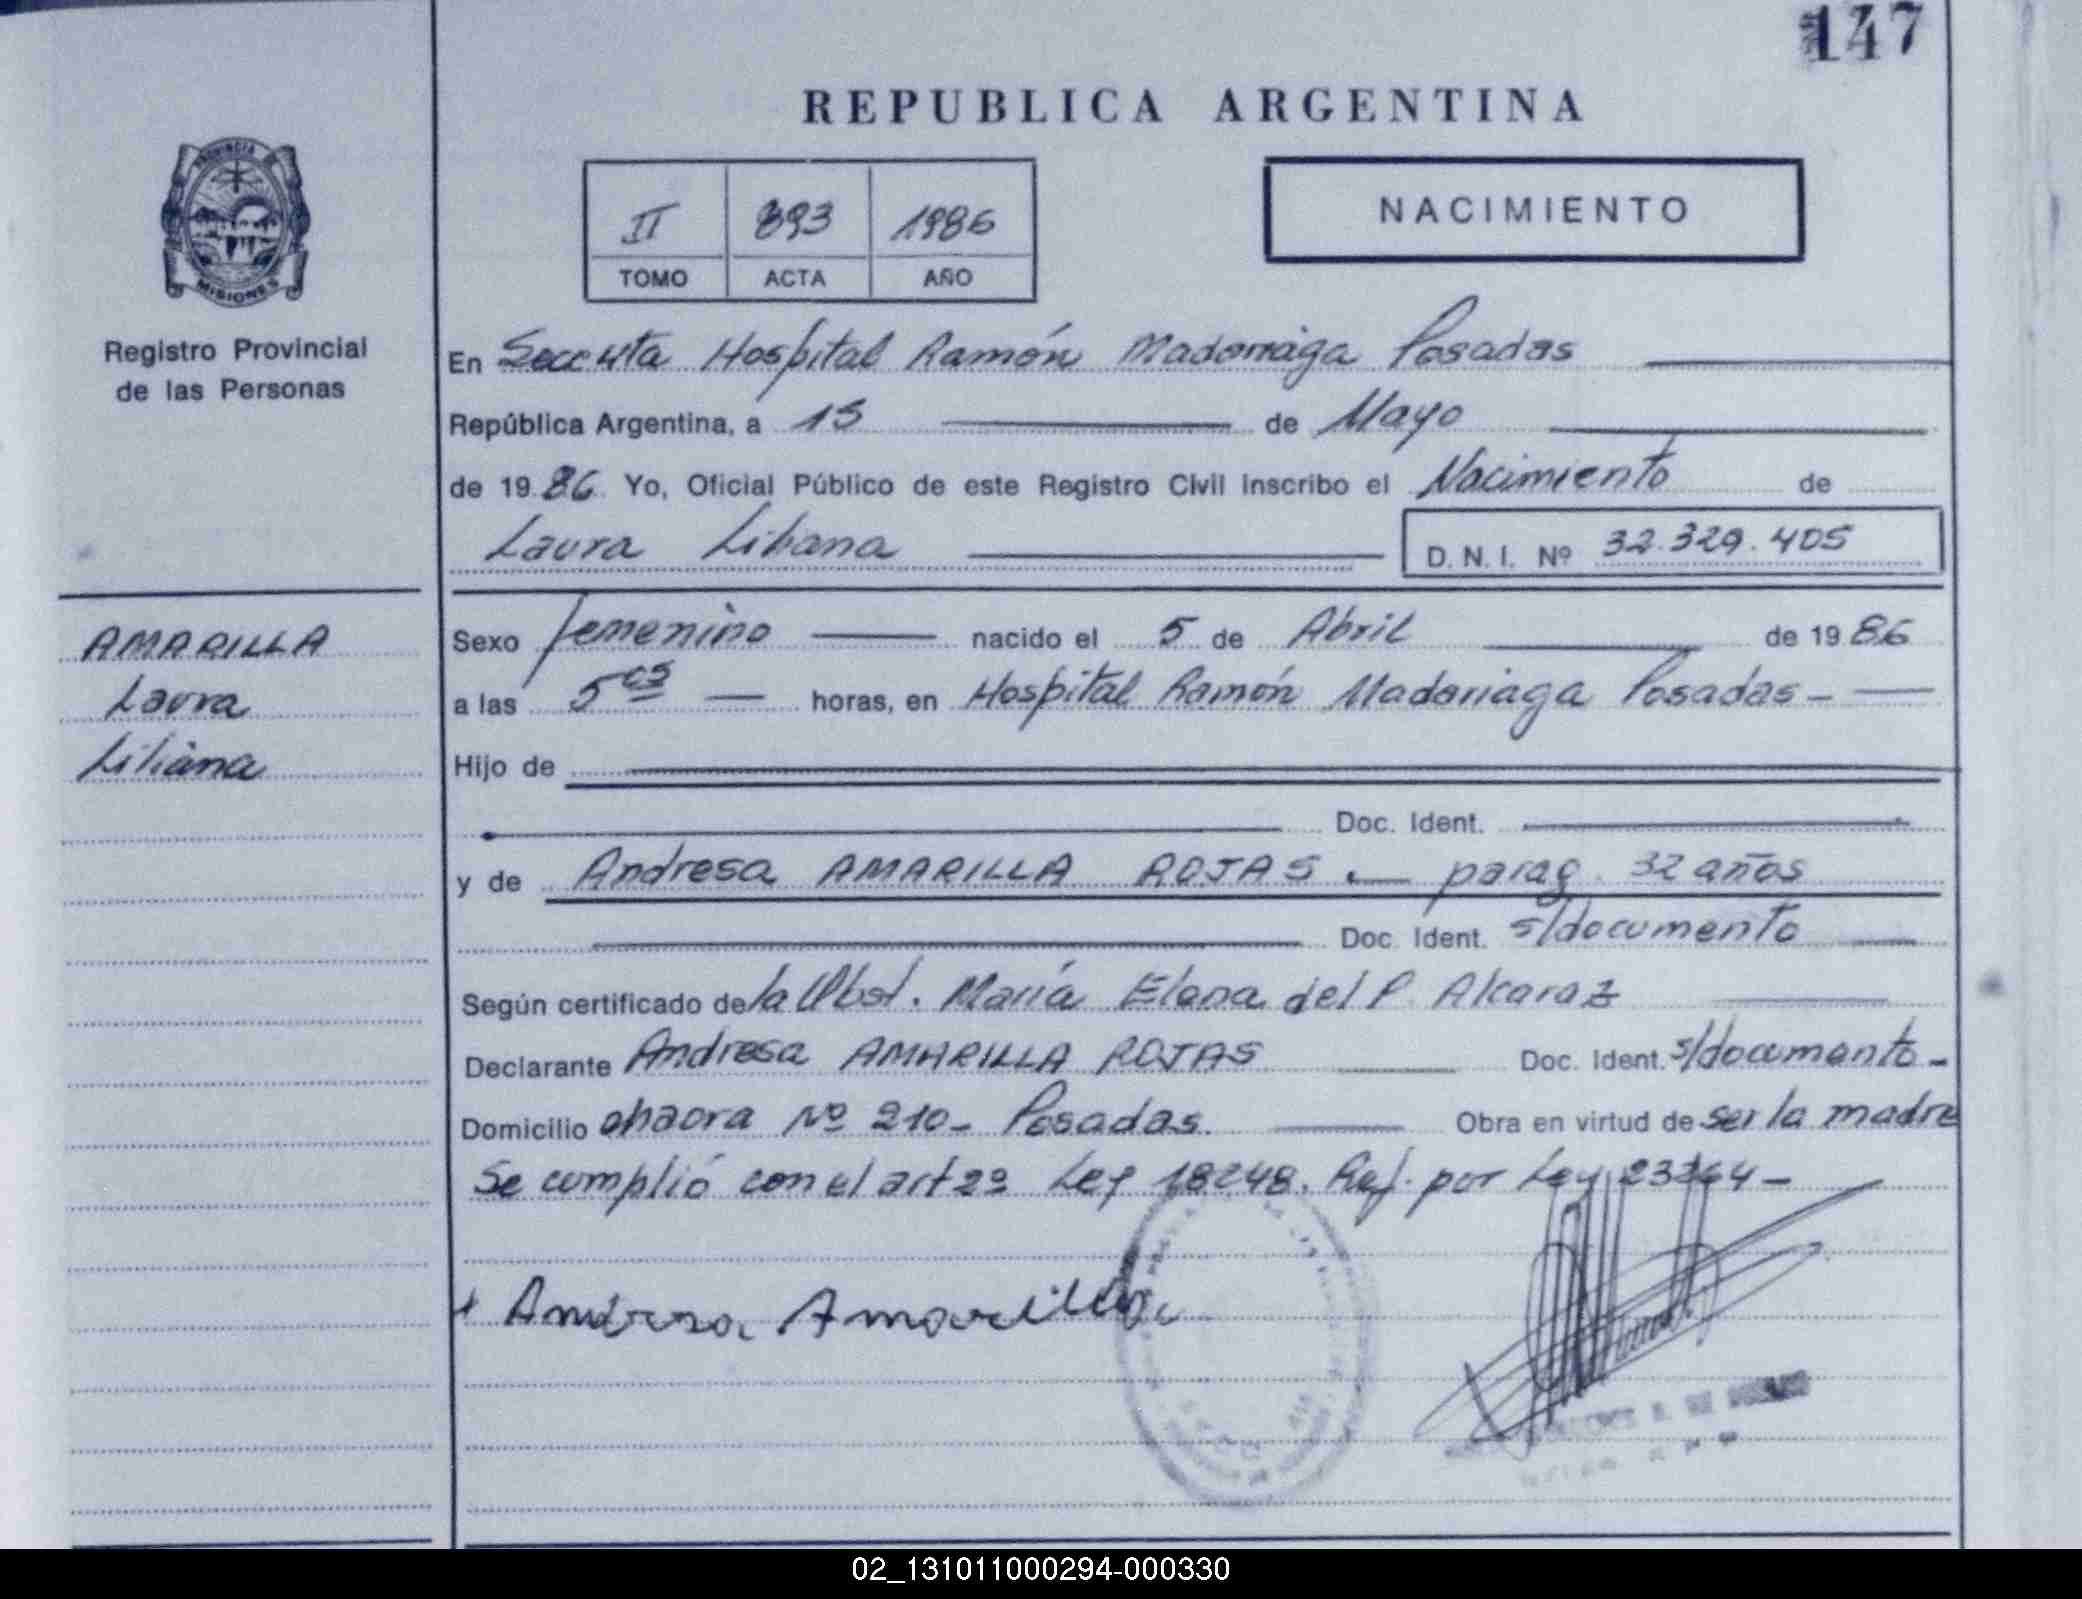 147
REPUBLICA ARGENTINA
PROVINCIA
MISIONES
Registro Provincial
de las Personas
II 893 1986
TOMO ACTA AÑO
NACIMIENTO
En Secc 4ta Hospital Ramón Madariaga Posadas
República Argentina, a 15 de Mayo
de 1986 Yo, Oficial Público de este Registro Civil inscribo el Nacimiento de
Laura Liliana D. N. I. Nº 32.329.405
AMARILLA
Laura
Liliana
Sexo femenino nacido el 5 de Abril de 1986
a las 5 horas, en Hospital Ramón Madariaga Posadas -
Hijo de
Doc. Ident.
y de Andresa AMARILLA ROJAS . parag. 32 años
Doc. Ident. s/documento
Según certificado de la Obst. María Elena del P. Alcaraz
Declarante Andresa AMARILLA ROJAS Doc. Ident. s/documento -
Domicilio chacra Nº 210 - Posadas. Obra en virtud de ser la madre
Se cumplió con el art 2º Ley 18248. Ref. por Ley 23264 -
Andresa Amarilla
02_131011000294-000330